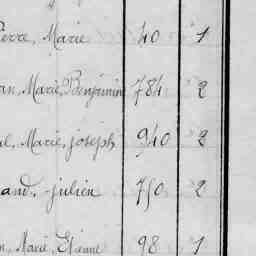 Pierre, Marie 40 1
an, Marie, Benjamin 784 2
al, Marie, joseph 940 2
and, julien 750 2
n, Marie, Etienne 98 1